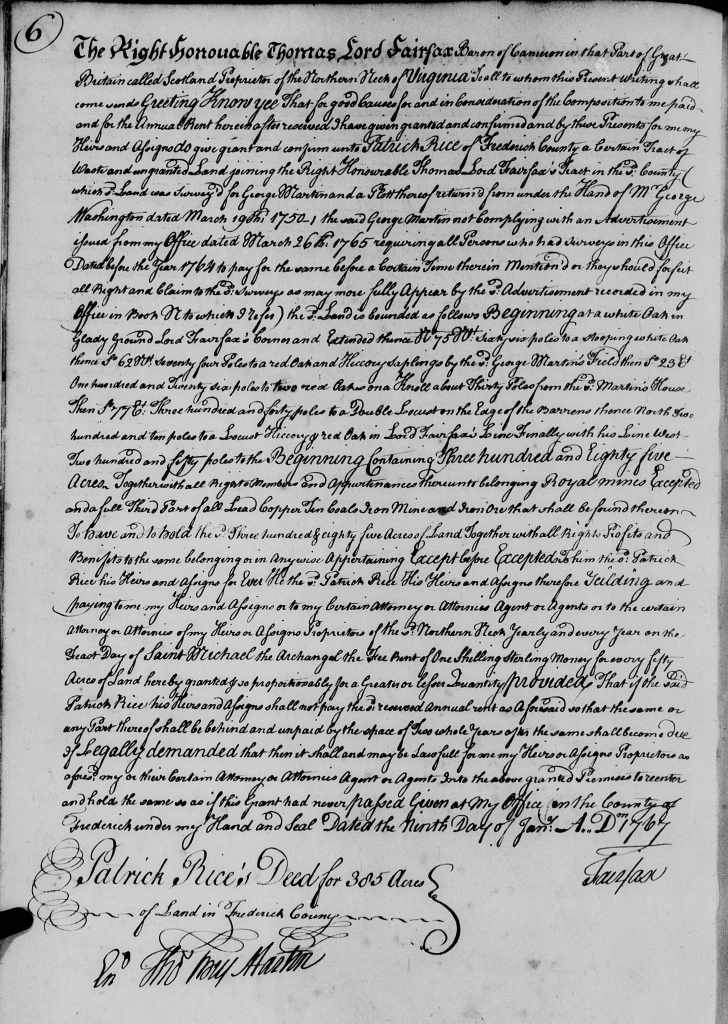 6
The Right Honouable Thomas Lord Fairfax Baron of Cameron in that Part of Great
Britain called Scotland Proprietor of the Northern Neck of Virginia To all to whom this Present Writing shall
come sends Greeting Know yee That for good Causes for and in Consideration of the Composition to me paid
and for the Annual Rent herein after reserved I have given granted and confirmed and by these Presents for me my
Heirs and Assigns do give grant and confirm unto Patrick Rice of Frederick County a Certain Tract of
Waste and ungranted Land joining the Right Honourable Thomas Lord Fairfax's Tract in the sd. County (
which sd. Land was Survey'd for George Martin and a Plott thereof return'd from under the Hand of Mr. George
Washington dated March 19th. 1750-1 the said George Martin not Complying with an Advertisement
issued from my Office dated March 26th. 1765 requiring all Persons who had Surveys in this Office
Dated before the Year 1764 to pay for the same before a Certain Time therein Mention'd or they should forfeit
all Right and Claim to the sd. Surveys as may more fully Appear by the sd. Advertisement recorded in my
Office in Book N to which I refer) the sd. Land is bounded as follows Beginning at a white Oak in
Glady Ground Lord Fairfax's Corner and Extended thence No. 75 Wt. Sixty six poles to a stooping white Oak
thence So. 62 Wt. Seventy four Poles to a red Oak and Hiccory Saplings by the sd. George Martin's Field then So. 23 Et
One hundred and Twenty six poles to two red Oakes on a Knoll about Thirty Poles from the sd. Martin's House
Then So. 77 E. Three hundred and forty poles to a Double Locust on the Edge of the Barrens thence North Two
hundred and ten poles to a Locust Hiccory & red Oak in Lord Fairfax's Line Finally with his Line West
Two hundred and fifty poles to the Beginning Containing Three hundred and Eighty five
Acres Together with all Rights Members and Appurtinances thereunto belonging Royal mines Excepted
and a full Third Part of all Lead Copper Tin Coals Iron Mine and Iron Ore that shall be found thereon
To have and to hold the sd. Three hundred & eighty five Acres of Land Together with all Rights Profits and
Benefits to the same belonging or in Any wise Appertaining Except before Excepted To him the sd. Patrick
Rice his Heirs and Assigns for Ever He the sd. Patrick Rice His Heirs and Assigns therefore Yeilding and
paying to me my Heirs and Assigns or to my Certain Attorney or Attornies Agent or Agents or to the certain
Attorney or Attornies of my Heirs or Assigns Proprietors of the sd. Northern Neck Yearly and every Year on the
Feast Day of Saint Michael the Archangel the Fee Rent of One Shelling Sterling Money for every fifty
Acres of Land hereby granted & so proportionably for a Greater or lesser Quantity Provided That if the said
Patrick Rice his Heirs and Assigns shall not pay the sd. reserved Annual rent as Aforesaid so that the same or
any Part thereof shall be behind and unpaid by the space of Two whole Years after the same shall become Due
if Legally demanded that then it shall and may be Lawfull for me my Heirs or Assigns Proprietors as
aforesd. my or their Certain Attorney or Attornies Agent or Agents Into the above granted Premises to reenter
and hold the same so as if this Grant had never passed Given at My Office in the County of
Frederick under my Hand and Seal Dated the Ninth Day of Jany. A.. Dom 1767
Fairfax
Patrick Rice's Deed for 385 Acres
of Land in Frederick County
Exd. Thos. Bry Martin